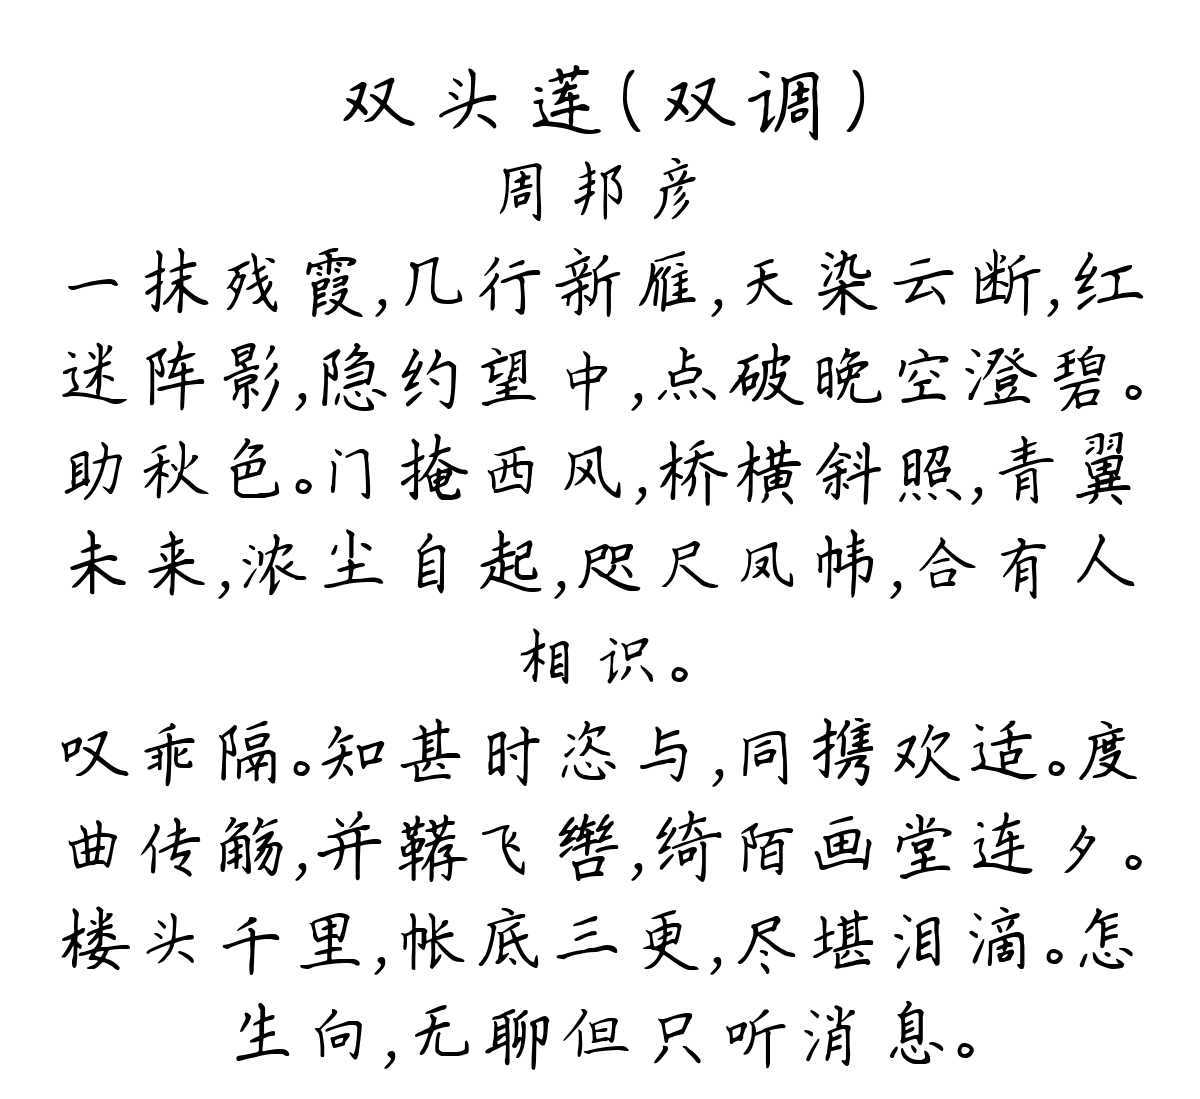 双头莲(双调)
周邦彦
一抹残霞,几行新雁,天染云断,红
迷阵影,隐约望中,点破晚空澄碧。
助秋色。门掩西风,桥横斜照,青翼
未来,浓尘自起,咫尺凤帏,合有人
相识。
叹乖隔。知甚时恣与,同携欢适。度
曲传觞,并鞯飞辔,绮陌画堂连夕。
楼头千里,帐底三更,尽堪泪滴。怎
生向,无聊但只听消息。